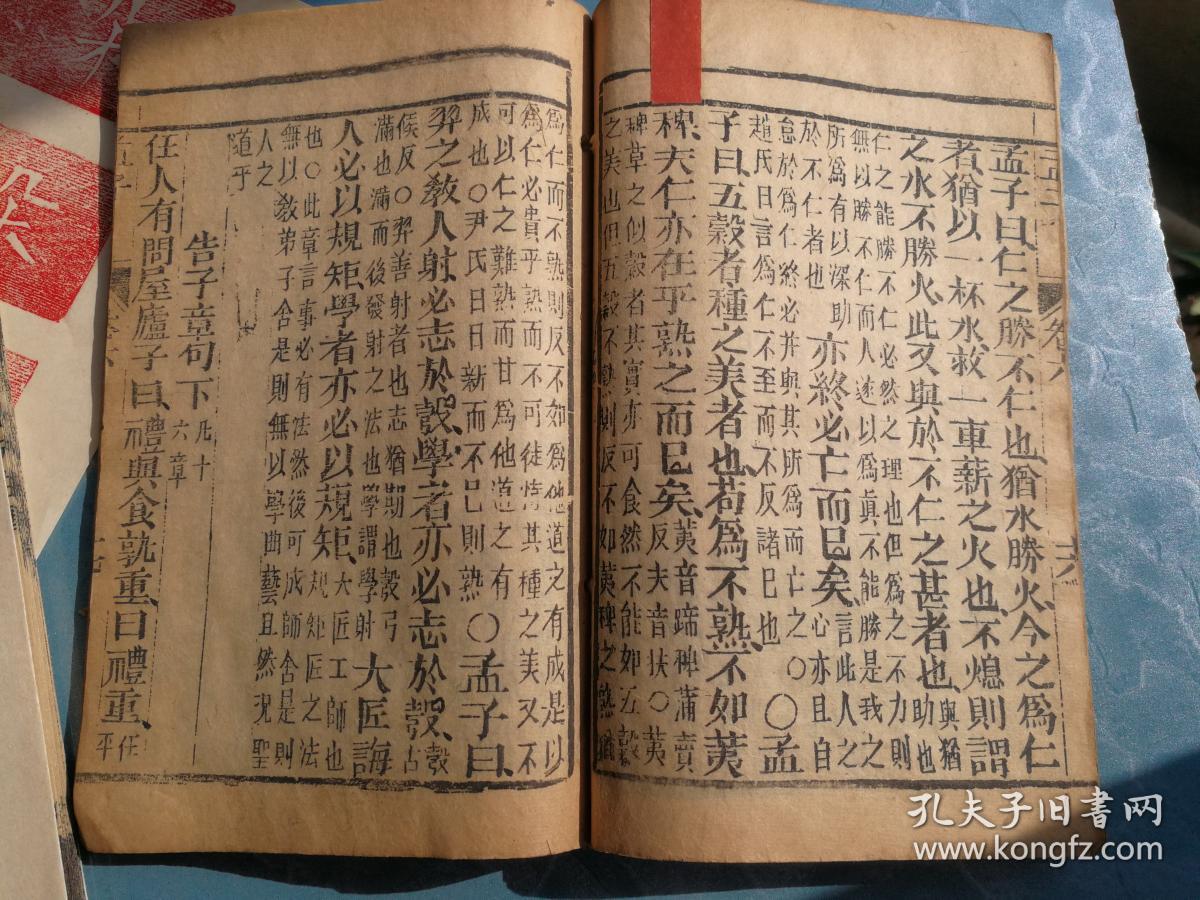 孟子曰仁之勝不仁也猶水勝火今之爲仁
者猶以一杯水救一車薪之火也不熄則謂
之水不勝火此又與於不仁之甚者也與猶
助也
仁之能勝不仁必然之理也但爲之不力則
無以勝不仁而人遂以爲眞不能勝是我之
所爲有以深助
於不仁者也
亦終必亡而已矣言此人之
心亦且自
怠於爲仁終必并與其所爲而亡之○
趙氏曰言爲仁不至而不反諸已也
○孟
子曰五穀者種之美者也苟爲不熟不如荑
稗夫仁亦在乎熟之而已矣荑音蹄稗蒲賣
反夫音扶○荑
稗草之似穀者其實亦可食然不能如五穀
之美也但五穀不熟則反不如荑稗之熟猶
爲仁而不熟則反不如爲他道之有成是以
爲仁必貴乎熟而不可徒恃其種之美又不
可以仁之難熟而甘爲他道之有
成也○尹氏曰日新而不已則熟
○孟子曰
羿之敎人射必志於彀學者亦必志於彀彀古
候反○羿善射者也志猶期也彀弓
滿也滿而後發射之法也學謂學射
大匠誨
人必以規矩學者亦必以規矩大匠工師也
規矩匠之法
也○此章言事必有法然後可成師舍是則
無以敎弟子舍是則無以學曲藝且然況聖
人之
道乎
告子章句下凡十
六章
任人有問屋廬子曰禮與食孰重曰禮重任
平
孔夫子旧书网
www.kongfz.com